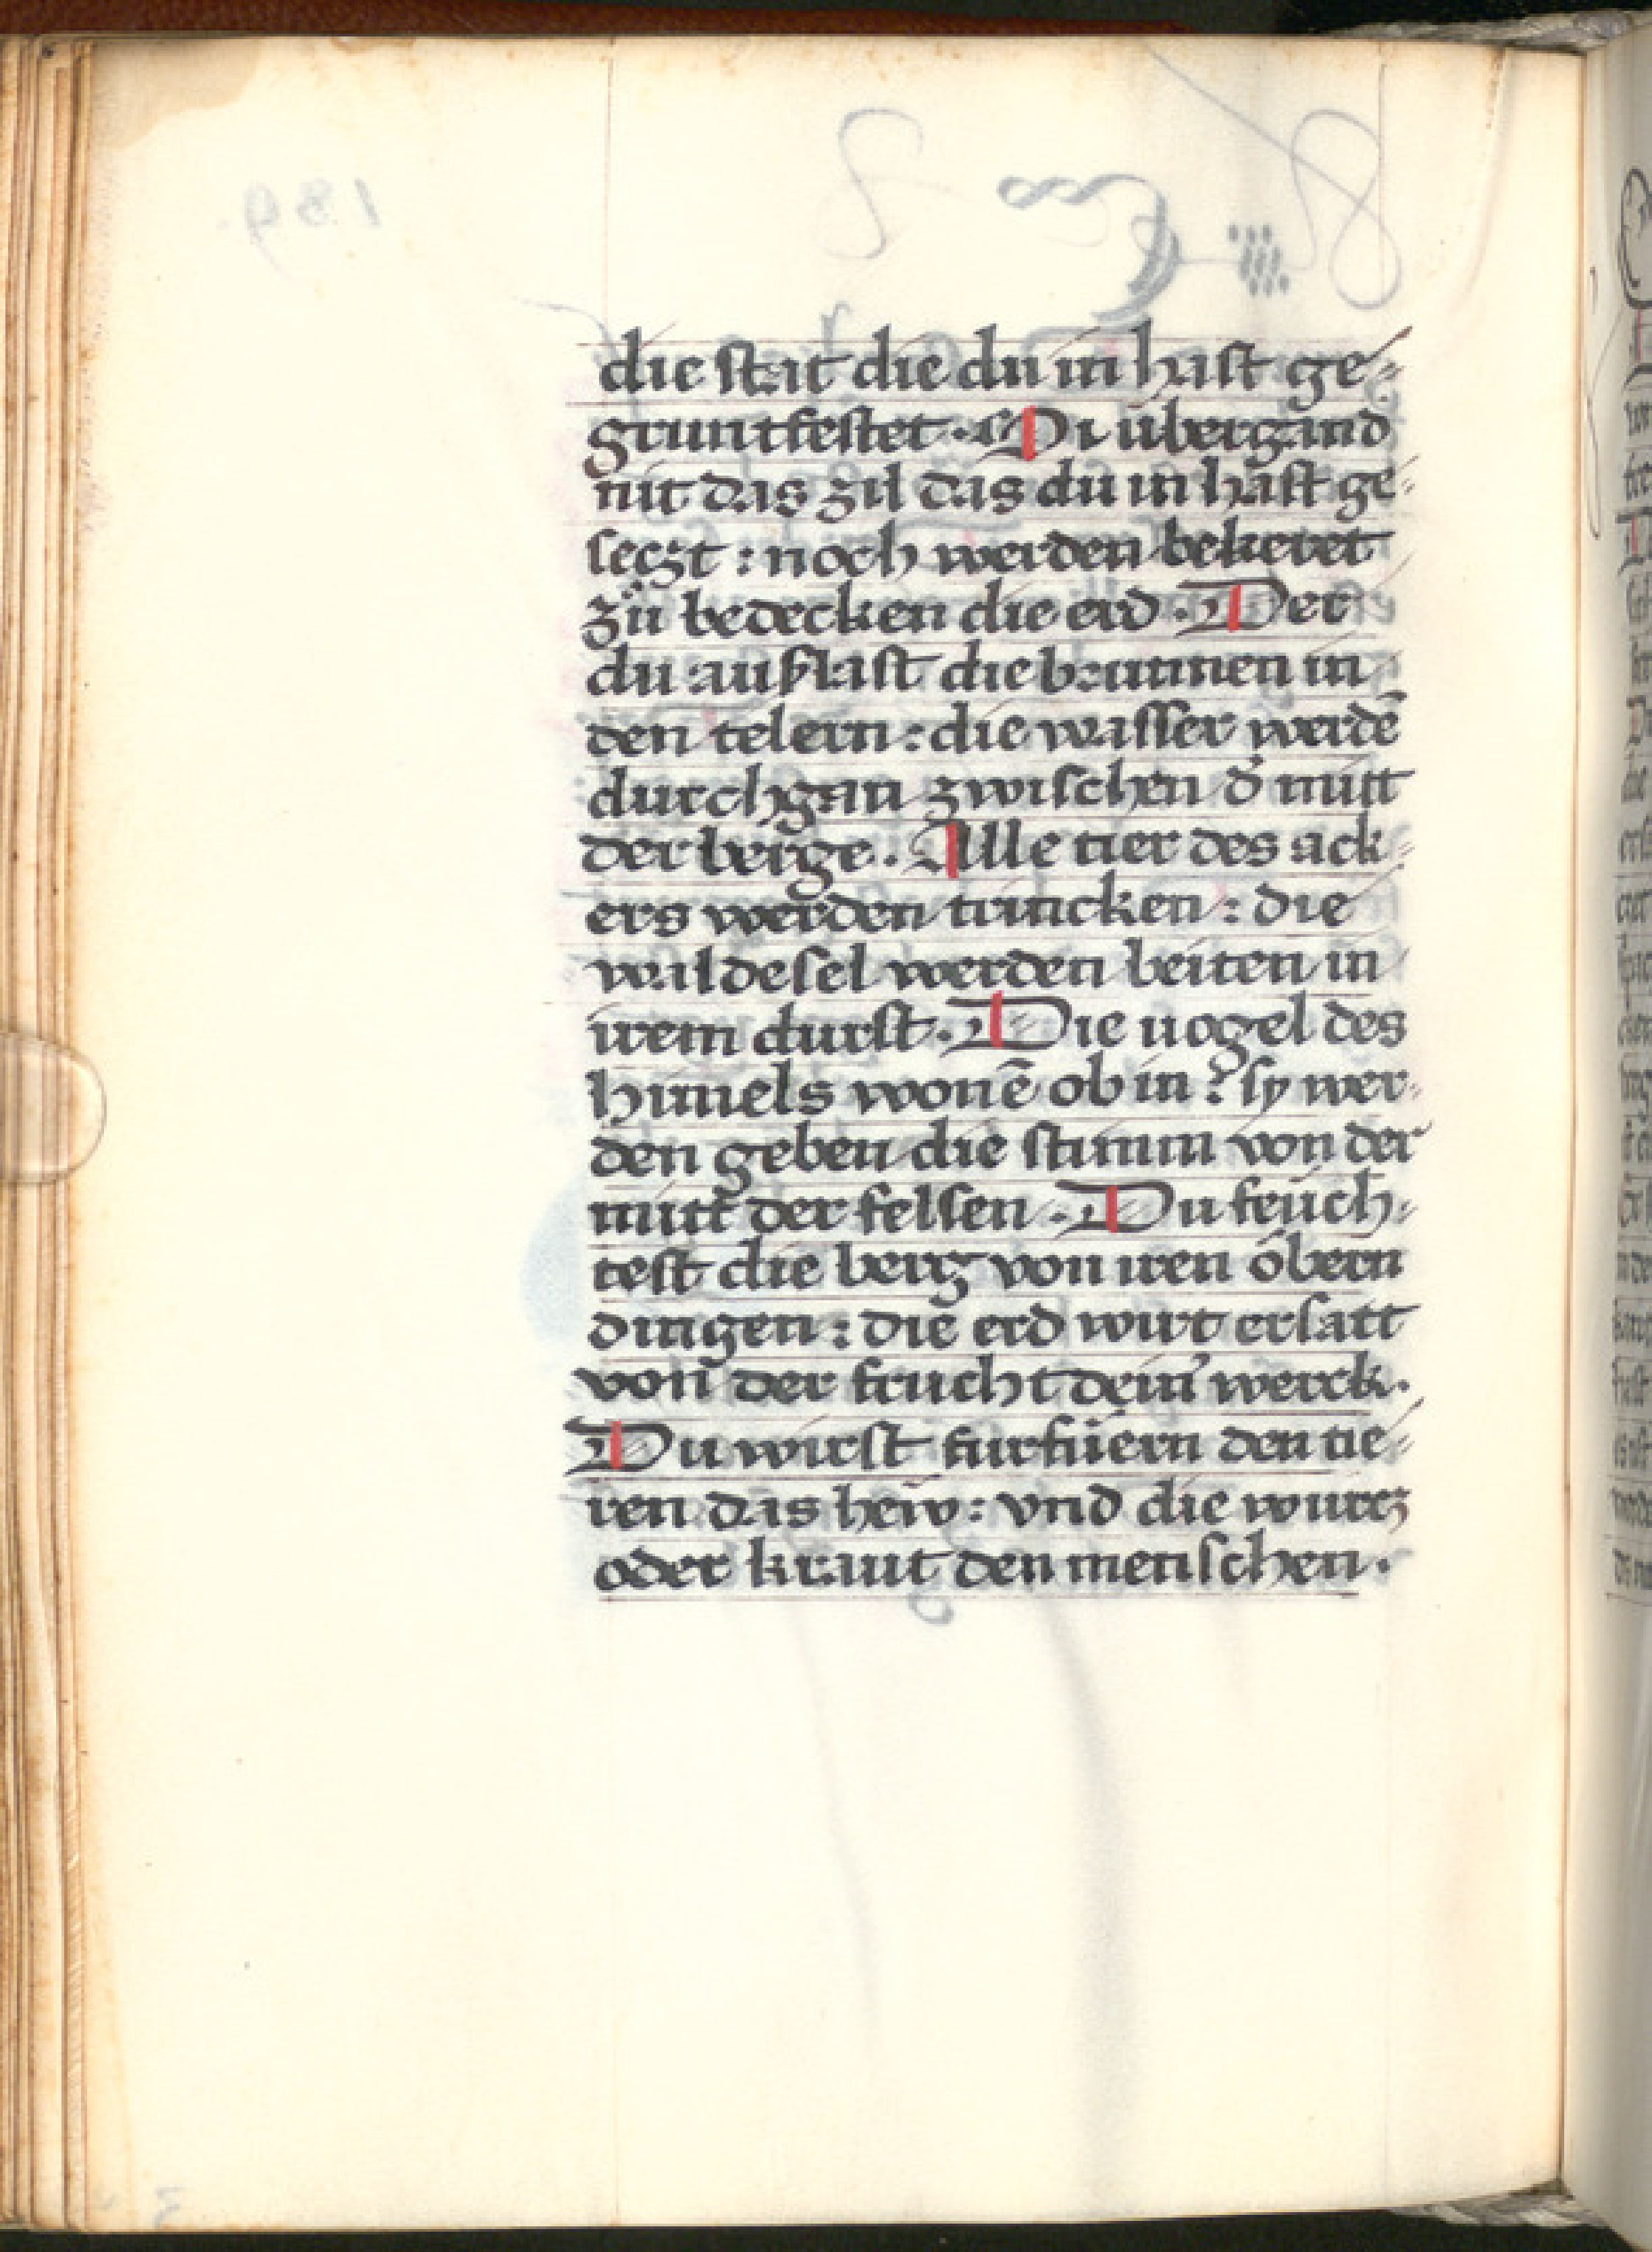 die ſtat die du in haſt ge⸗
gruntfeſtet · Di übergand
nit das zil das du in haſt ge⸗
ſeczt : noch werden bekeret
zů bedecken die erd · Der
du auſzlaſt die brunnen in
den telern : die waſſer werdē
durchgan zwiſchen d' mitt
der berge . Alle tier des ack⸗
ers werden trincken : die
waldeſel werden beiten in
irem durſt · Die uogel des
himels wonē ob in : ſy wer⸗
den geben die ſtimm von der
mitt der felſen · Du feuch⸗
teſt die berg von iren óbern
dingen : die erd wirt erſatt
von der frucht dein' werck.
Du wirſt furfüern den tie⸗
ren das heiw : vnd die wurcz
oder kraut den menſchen .